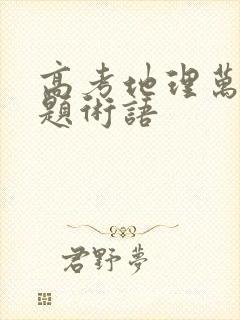 高考地理萬
題術語
君野夢